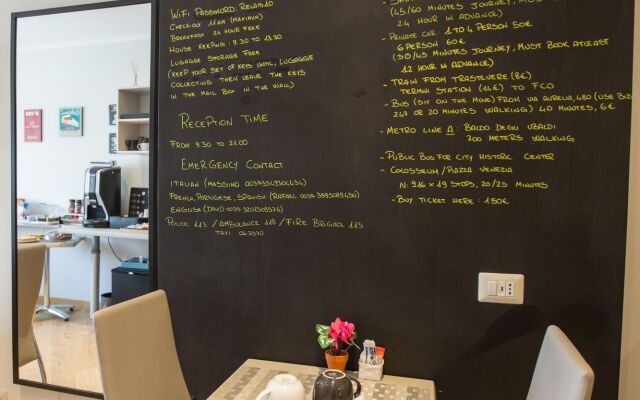 WiFi Password: Relais10
Check-out 11AM (Maximum)
Breakfast 24 hour free
House keeping 9.30 to 13.30
Luggage Storage Free
(Keep your set of keys until, luggage
collecting then leave the keys
in the mail box in the wall)
Reception Time
From 9.30 to 21.00
Emergency Contact
Italian (Massimo
French, Portugese, Spanish (Rafael
English (David
Police 113 / Ambulance 118 / Fire Brigade 115
Taxi 063570
(45/60 minutes journey, must
24 hour in advance)
- Private car 1 to 4 person 50€
6 person 60€
(30/45 minutes journey, must book atleast
12 hour in advance)
- Train from Trastevere (8€)
Termini station (14€) to FCO
- Bus (Sit on the move) from via Aurelia, 480 (use bus
247 or 20 minutes walking) 40 minutes, 6€
- Metro Line A: Baldo degli Ubaldi
700 meters walking
- Public bus for city historic center
- Colosseum / Piazza Venezia
N: 916 x 19 stops, 20/25 minutes
- Buy ticket here: 150€